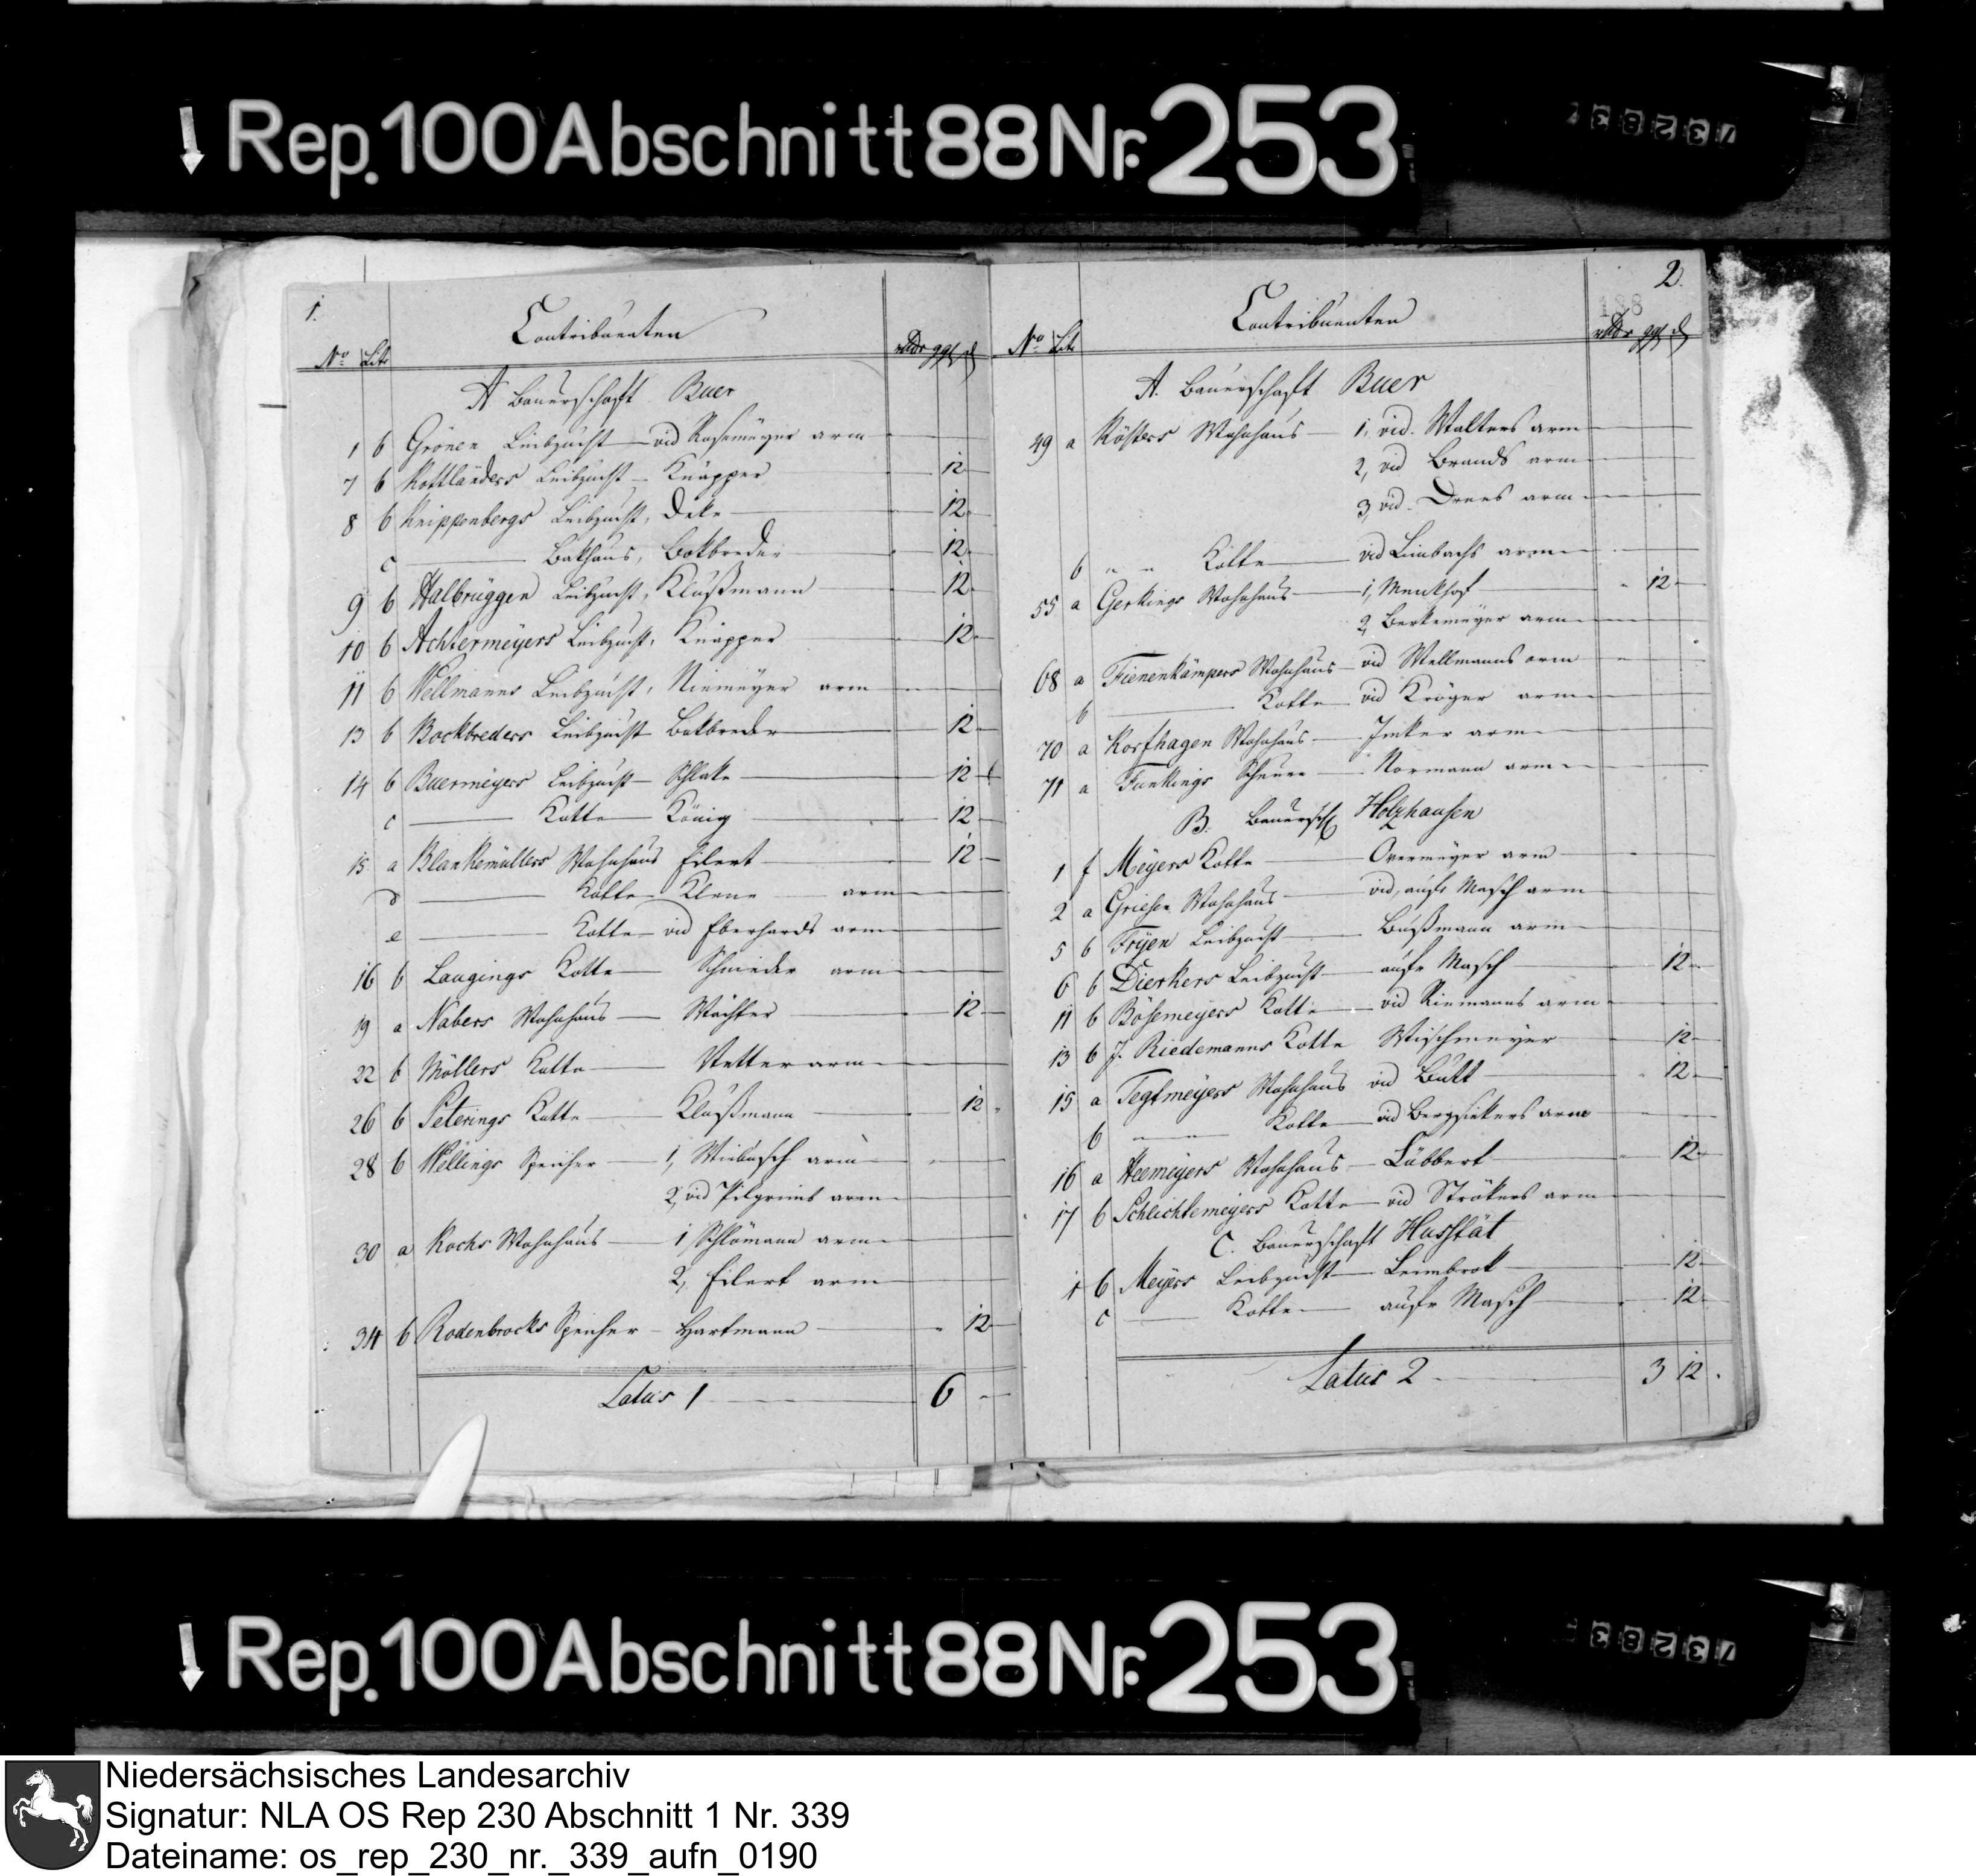 Rep. 100 Abschnitt 88 Nr. 253
73283
1.
Contribuenten
No Litr rthlr ggl d
A Bauerschaft Buer
1 b Grönen Leibzucht — vid Rosemeyer arm
7 b Kottländers Leibzucht — Knäpper 12
8 b Knippenbergs Leibzucht, Deke 12
c — Bakhaus, Bokbreder 12
9 b Halbrüggen Leibzucht, Klußmann 12
10 b Achtermeyers Leibzucht, Knäpper 12
11 b Wellmanns Leibzucht, Niemeyer arm
13 b Bockbreders Leibzucht Bokbreder 12
14 b Buermeyers Leibzucht — Schlake 12
c — Kotte — König 12
15 a Blankemüllers Wohnhaus Eilert 12
d — Kotte Klene arm
e — Kotte — vid Eberhards arm
16 b Laugings Kotte — Schnieder arm
19 a Nabers Wohnhaus — Wächter 12
22 b Möllers Kotte — Vetter arm
26 b Peterings Kotte — Klußmann 12
28 b Wellings Speicher — 1, Wiebusch arm
2, vid Pilgrims arm
30 a Kochs Wohnhaus — 1, Schlömann arm
2, Eilert arm
34 b Rodenbrocks Speicher — Hartmann 12
Latus 1 — 6 —
2.
188
Contribuenten
No Litr rthlr ggl d
A. Bauerschaft Buer
49 a Kösters Wohnhaus — 1, vid. Walters arm
2, vid Brands arm
3, vid. Drees arm
b " " Kotte — vid Limbachs arm
55 a Gerkings Wohnhaus — 1, Menkhof 12
2, Berkemeyer arm
68 a Fienenkämpers Wohnhaus — vid Wellmanns arm
b — Kotte — vid Kröger arm
70 a Korfhagen Wohnhaus — Imker arm
71 a Funkings Scheune — Normann arm
B. Bauersch. Holzhausen
1 f Meyers Kotte — Overmeyer arm
2 a Griesen Wohnhaus — vid, aufr Masch arm
5 b Fryen Leibzucht — Bußmann arm
6 b Dierkers Leibzucht — aufr Masch 12
11 b Bösemeyers Kotte — vid Niemanns arm
13 b J. Riedemanns Kotte Wischmeyer 12
15 a Tegtmeyers Wohnhaus vid Butt 12
b " " Kotte — vid Bergsiekers arm
16 a Heemeyers Wohnhaus — Lübbert 12
17 b Schlichtemeyers Kotte — vid Strökers arm
C. Bauerschaft Hustät
1 b Meyers Leibzucht — Leimbrok 12
c — Kotte — aufr Masch 12
Latus 2 — 3 12
Rep. 100 Abschnitt 88 Nr. 253
73283
Niedersächsisches Landesarchiv
Signatur: NLA OS Rep 230 Abschnitt 1 Nr. 339
Dateiname: os_rep_230_nr._339_aufn_0190